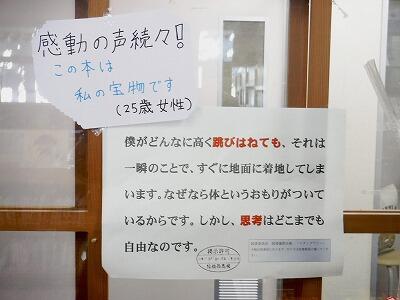 感動の声続々!
この本は
私の宝物です
(25歳女性)
僕がどんなに高く跳びはねても、それは
一瞬のことで、すぐに地面に着地してしまい
ます。なぜなら体というおもりがついて
いるからです。しかし、思考はどこまでも
自由なのです。
掲示許可